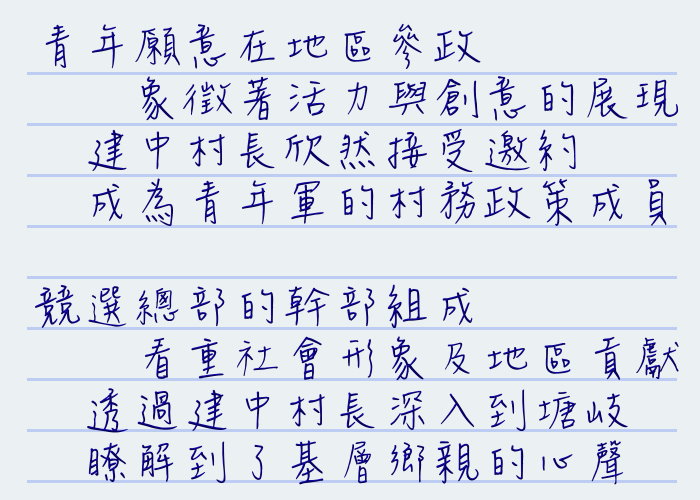 青年願意在地區參政
象徵著活力與創意的展現
建中村長欣然接受邀約
成為青年軍的村務政策成員
競選總部的幹部組成
看重社會形象及地區貢獻
透過建中村長深入到塘岐
瞭解到了基層鄉親的心聲